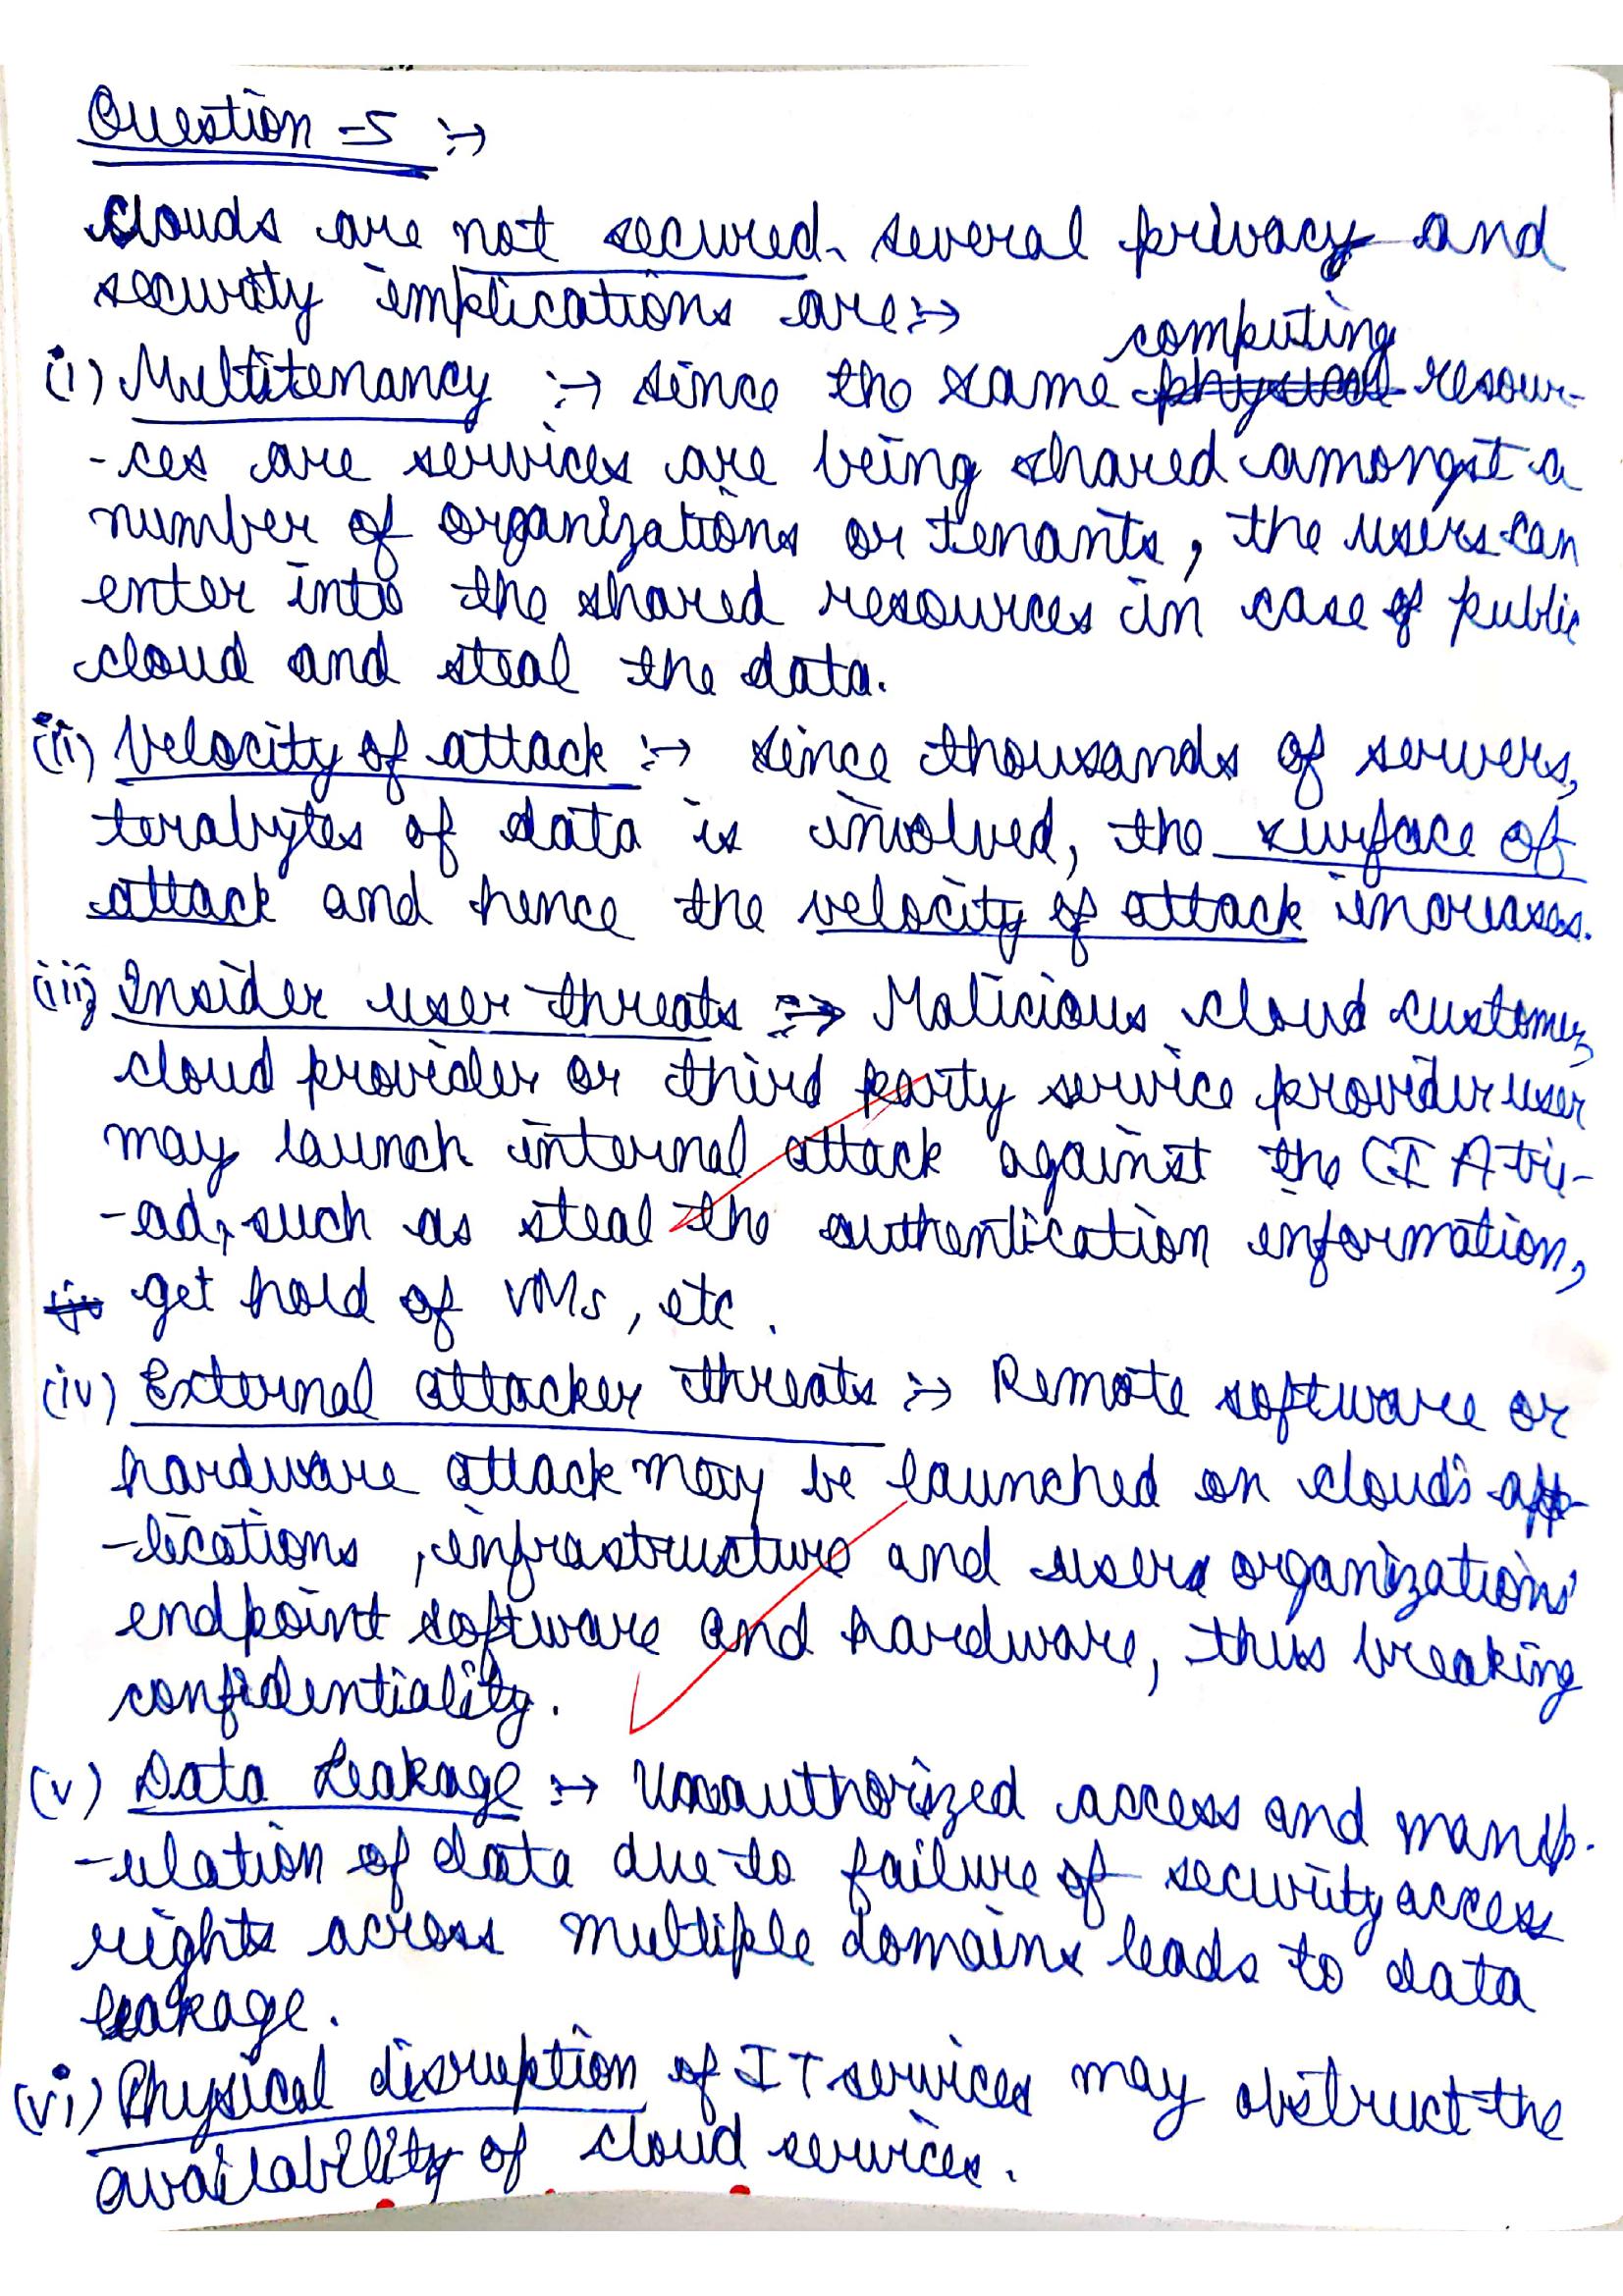 Question -5 :→
Clouds are not secured. several privacy and
security implications are :→
computing
(i) Multitenancy :→ since the same physical resour-
-ces are services are being shared amongst a
number of organizations or tenants, the users can
enter into the shared resources in case of public
cloud and steal the data.
(ii) Velocity of attack :→ since thousands of servers,
terabytes of data is involved, the surface of
attack and hence the velocity of attack increases.
(iii) Insider user threats :→ Malicious cloud customer,
cloud provider or third party service provider user
may launch internal attack against the CIA tri-
-ad, such as steal the authentication information,
get hold of VMs, etc.
(iv) External attacker threats :→ Remote software or
hardware attack may be launched on cloud's app-
-lications, infrastructure and users organizations'
endpoint software and hardware, thus breaking
confidentiality.
(v) Data Leakage :→ Unauthorized access and manip-
-ulation of data due to failure of security access
rights across multiple domains leads to data
leakage.
(vi) Physical disruption of IT services may obstruct the
availability of cloud services.